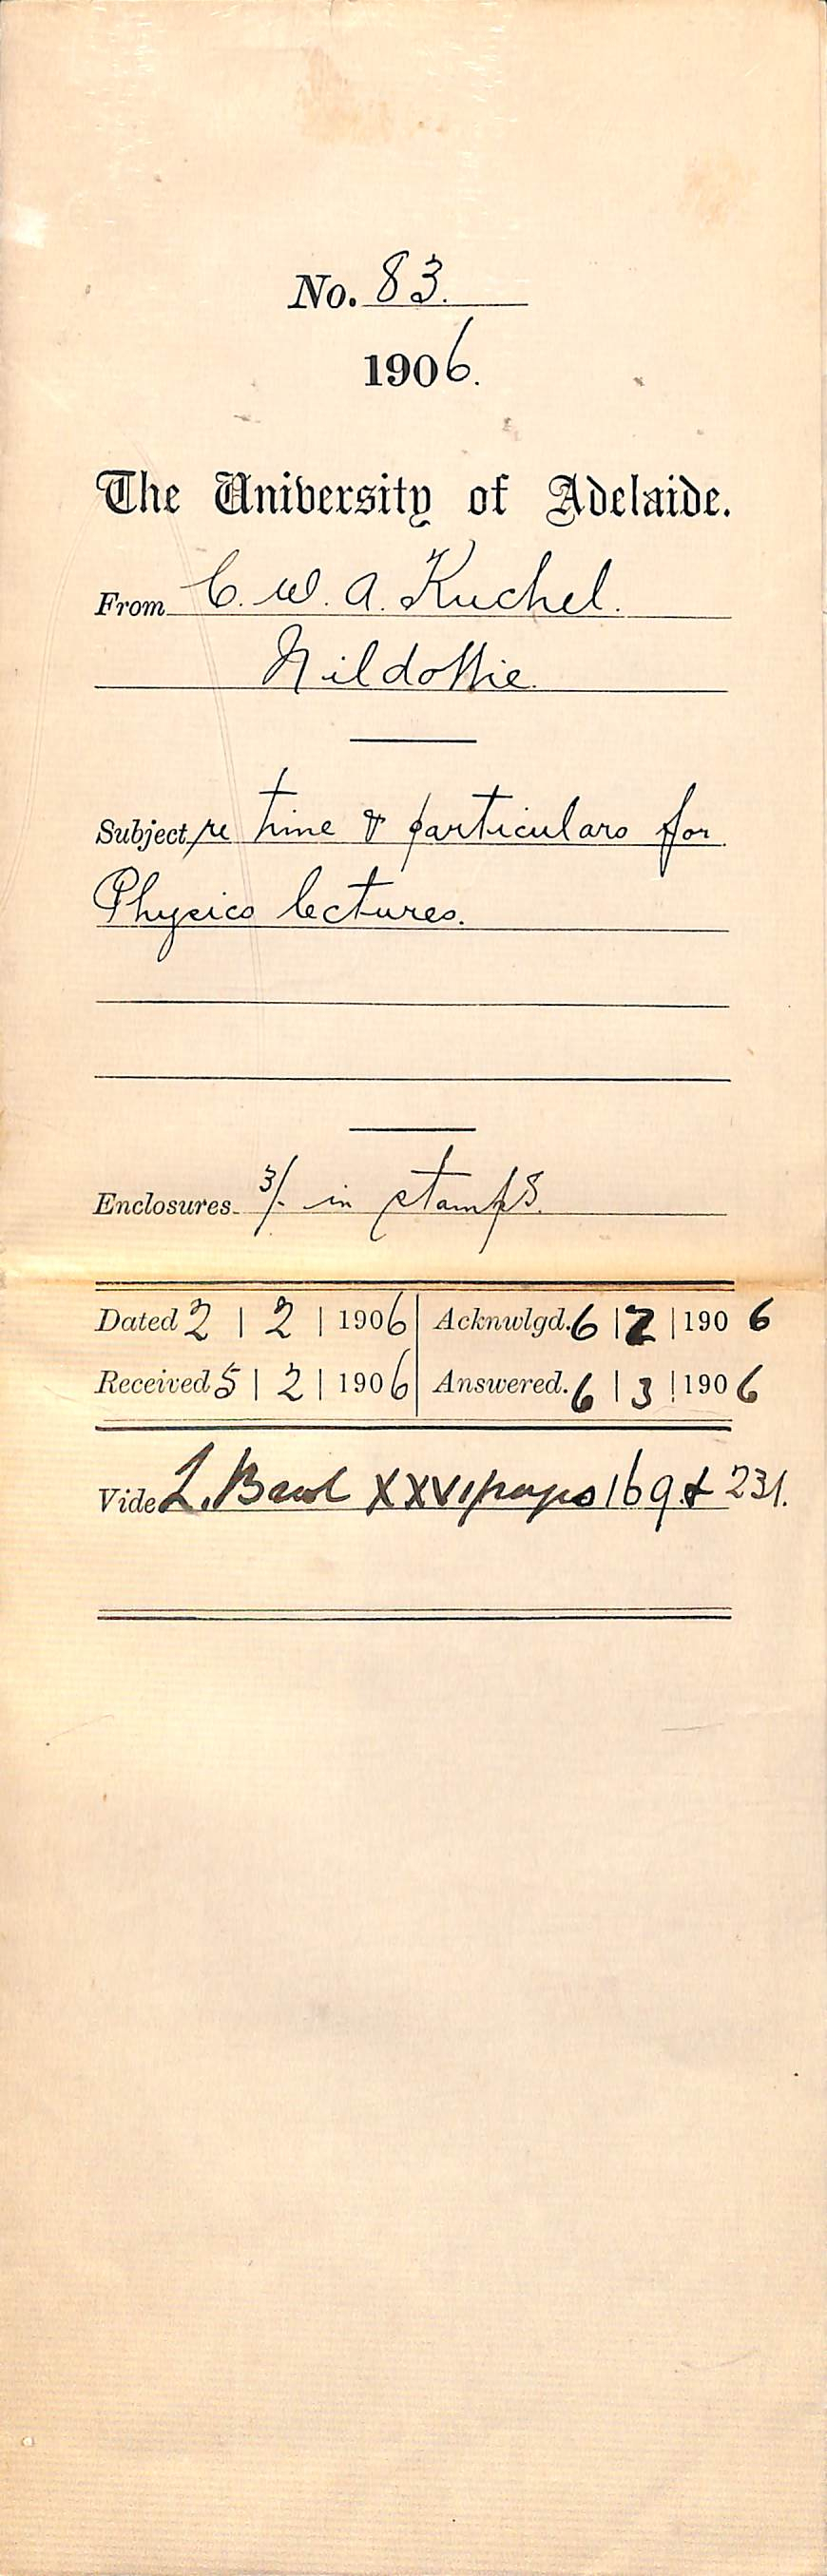 No. 83.
1906.
The University of Adelaide.
From C. W. A. Kuchel.
Nildottie.
Subject re time & particulars for
Physics lectures.
Enclosures. 3/- in stamps.
Dated 2 | 2 | 1906 Acknwlgd. 6 | 2 | 1906
Received 5 | 2 | 1906 Answered. 6 | 3 | 1906
Vide L. Book XXVI pages 169 & 231.